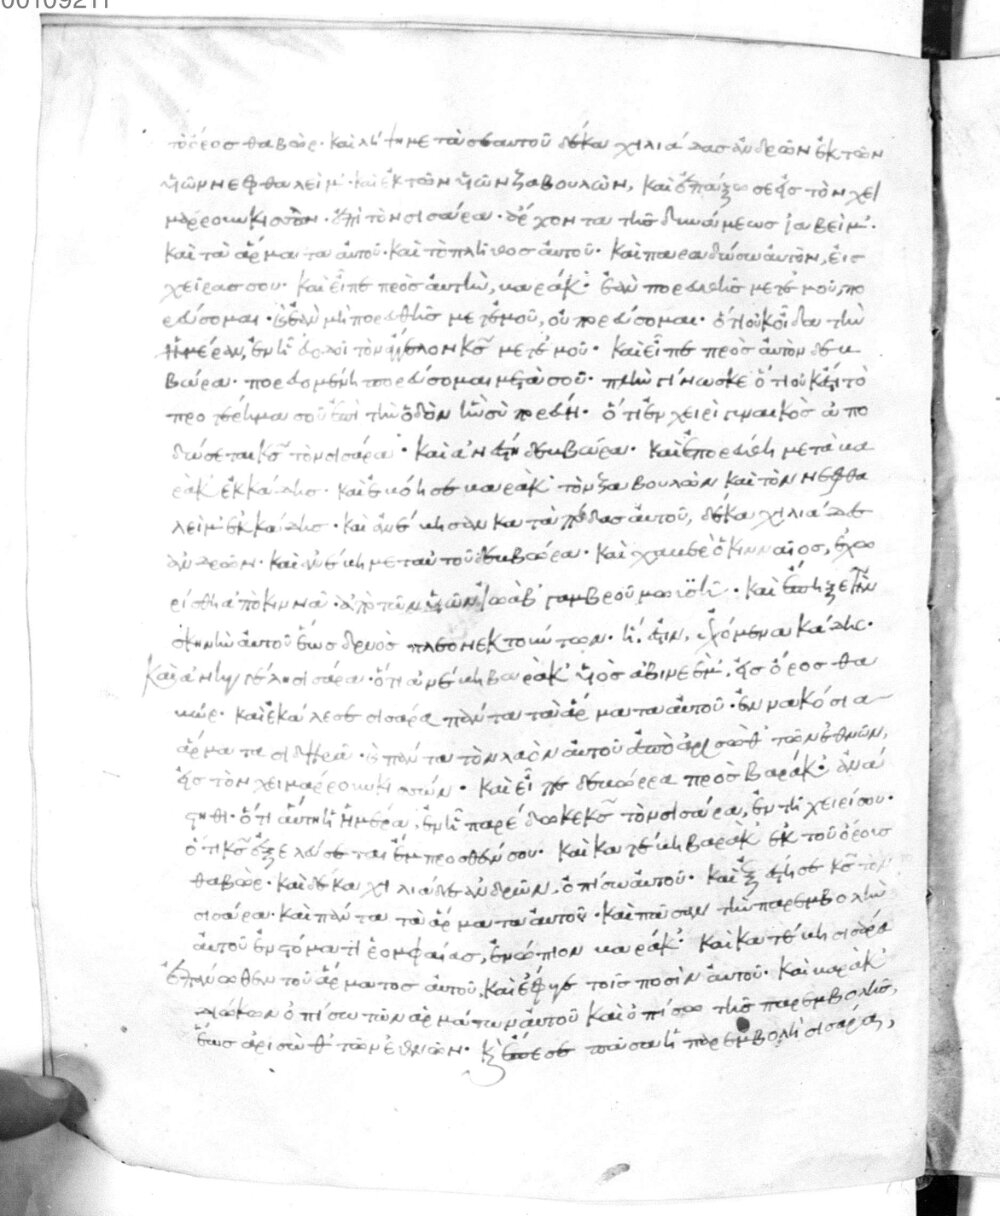 00109211
τὸ ὄρος θαβὼρ· καὶ λήψη μετὰ σεαυτοῦ δέκα χιλιάδας ἀνδρῶν ἐκ τῶν
υἱῶν νεφθαλεὶμ· καὶ ἐκ τῶν υἱῶν ζαβουλὼν, καὶ ἐπάξω σε εἰς τὸν χεί
μαρρον κισσὸν· ἐπὶ τὸν σισάρα· ἄρχοντα τῆς δυνάμεως ἰαβεὶμ·
καὶ τὰ ἅρματα αὐτοῦ· καὶ τὸ πλῆθος αὐτοῦ· καὶ παραδώσω αὐτὸν, εἰς
χεῖρας σου· καὶ εἶπε πρὸς αὐτὴν, βαρὰκ· ἐὰν πορευθῆς μετ' ἐμοῦ, πο
ρεύσομαι· καὶ ἐὰν μὴ πορευθῆς μετ' ἐμοῦ, οὐ πορεύσομαι· ὅτι οὐκ οἶδα τὴν
ἡμέραν, ἐν ἧ εὐοδοῖ τὸν ἄγγελον κς μετ' ἐμοῦ· καὶ εἶπε πρὸς αὐτὸν δεβ
βώρα· πορευομένη πορεύσομαι μετὰ σοῦ· πλὴν γίνωσκε ὅτι οὐκ ἔσται τὸ
προτέρημα σοῦ ἐπὶ τὴν ὁδὸν ἣν σὺ πορεύη· ὅτι ἐν χειρὶ γυναικὸς ἀπο
δώσεται κς τὸν σισάρα· καὶ ἀνέστη δεββώρα· καὶ ἐπορεύθη μετὰ βα
ρὰκ ἐκ κάδης· καὶ ἐβόησε βαρὰκ τὸν ζαβουλὼν καὶ τὸν νεφθα
λεὶμ ἐκ κάδης· καὶ ἀνέβησαν κατὰ πόδας αὐτοῦ, δέκα χιλιάδες
ἀνδρῶν· καὶ ἀνέβη μετ αὐτοῦ δεββώρα· καὶ χαβὲρ ὁ κινναῖος, ἐχω
ρίσθη ἀπὸ κινᾶ· ἀπὸ τῶν υἱῶν ἰωὰβ γαμβροῦ μωϋσῆ· καὶ ἔπηξε τὴν
σκηνὴν αὐτοῦ ἕως δρυὸς πλεονεκτούντων· ἥ ἐστιν, ἐχόμενα κάδης·
καὶ ἀνήγγειλαν σισάρα· ὅτι ἀνέβη βαρὰκ υἱὸς ἀβινεὲμ, εἰς ὄρος θα
βώρ· καὶ ἐκάλεσε σισάρα πάντα τὰ ἅρματα αὐτοῦ· ἐννακόσια
ἅρματα σιδηρᾶ· καὶ πάντα τὸν λαὸν αὐτοῦ ἀπὸ ἀρισὼθ τῶν ἐθνῶν,
εἰς τὸν χειμάρρον κισσών· καὶ εἶπε δεββόρρα πρὸς βαράκ· ἀνά
στηθι· ὅτι αὕτη ἡ ἡμέρα, ἐν ἧ παρέδωκε κς τὸν σισάρα, ἐν τῆ χειρί σου·
ὅτι κς ἐξελεύσεται ἔμπροσθέν σου· καὶ κατέβη βαρὰκ ἐκ τοῦ ὄρους
θαβὼρ· καὶ δέκα χιλιάδες ἀνδρῶν, ὀπίσω αὐτοῦ· καὶ ἐξέστησε κς τὸν
σισάρα· καὶ πάντα τὰ ἅρματα αὐτοῦ· καὶ πᾶσαν τὴν παρεμβολὴν
αὐτοῦ ἐν στόματι ῥομφαίας, ἐνώπιον βαράκ· καὶ κατέβη σισάρα
ἐπάνωθεν τοῦ ἅρματος αὐτοῦ, καὶ ἔφυγε τοῖς ποσὶν αὐτοῦ· καὶ βαρὰκ
διώκων ὀπίσω τῶν ἁρμάτων αὐτοῦ καὶ ὀπίσω τῆς παρεμβολῆς,
ἕως ἀρισὼθ τῶν ἐθνῶν· καὶ ἔπεσε πᾶσα ἡ παρεμβολὴ σισάρα,